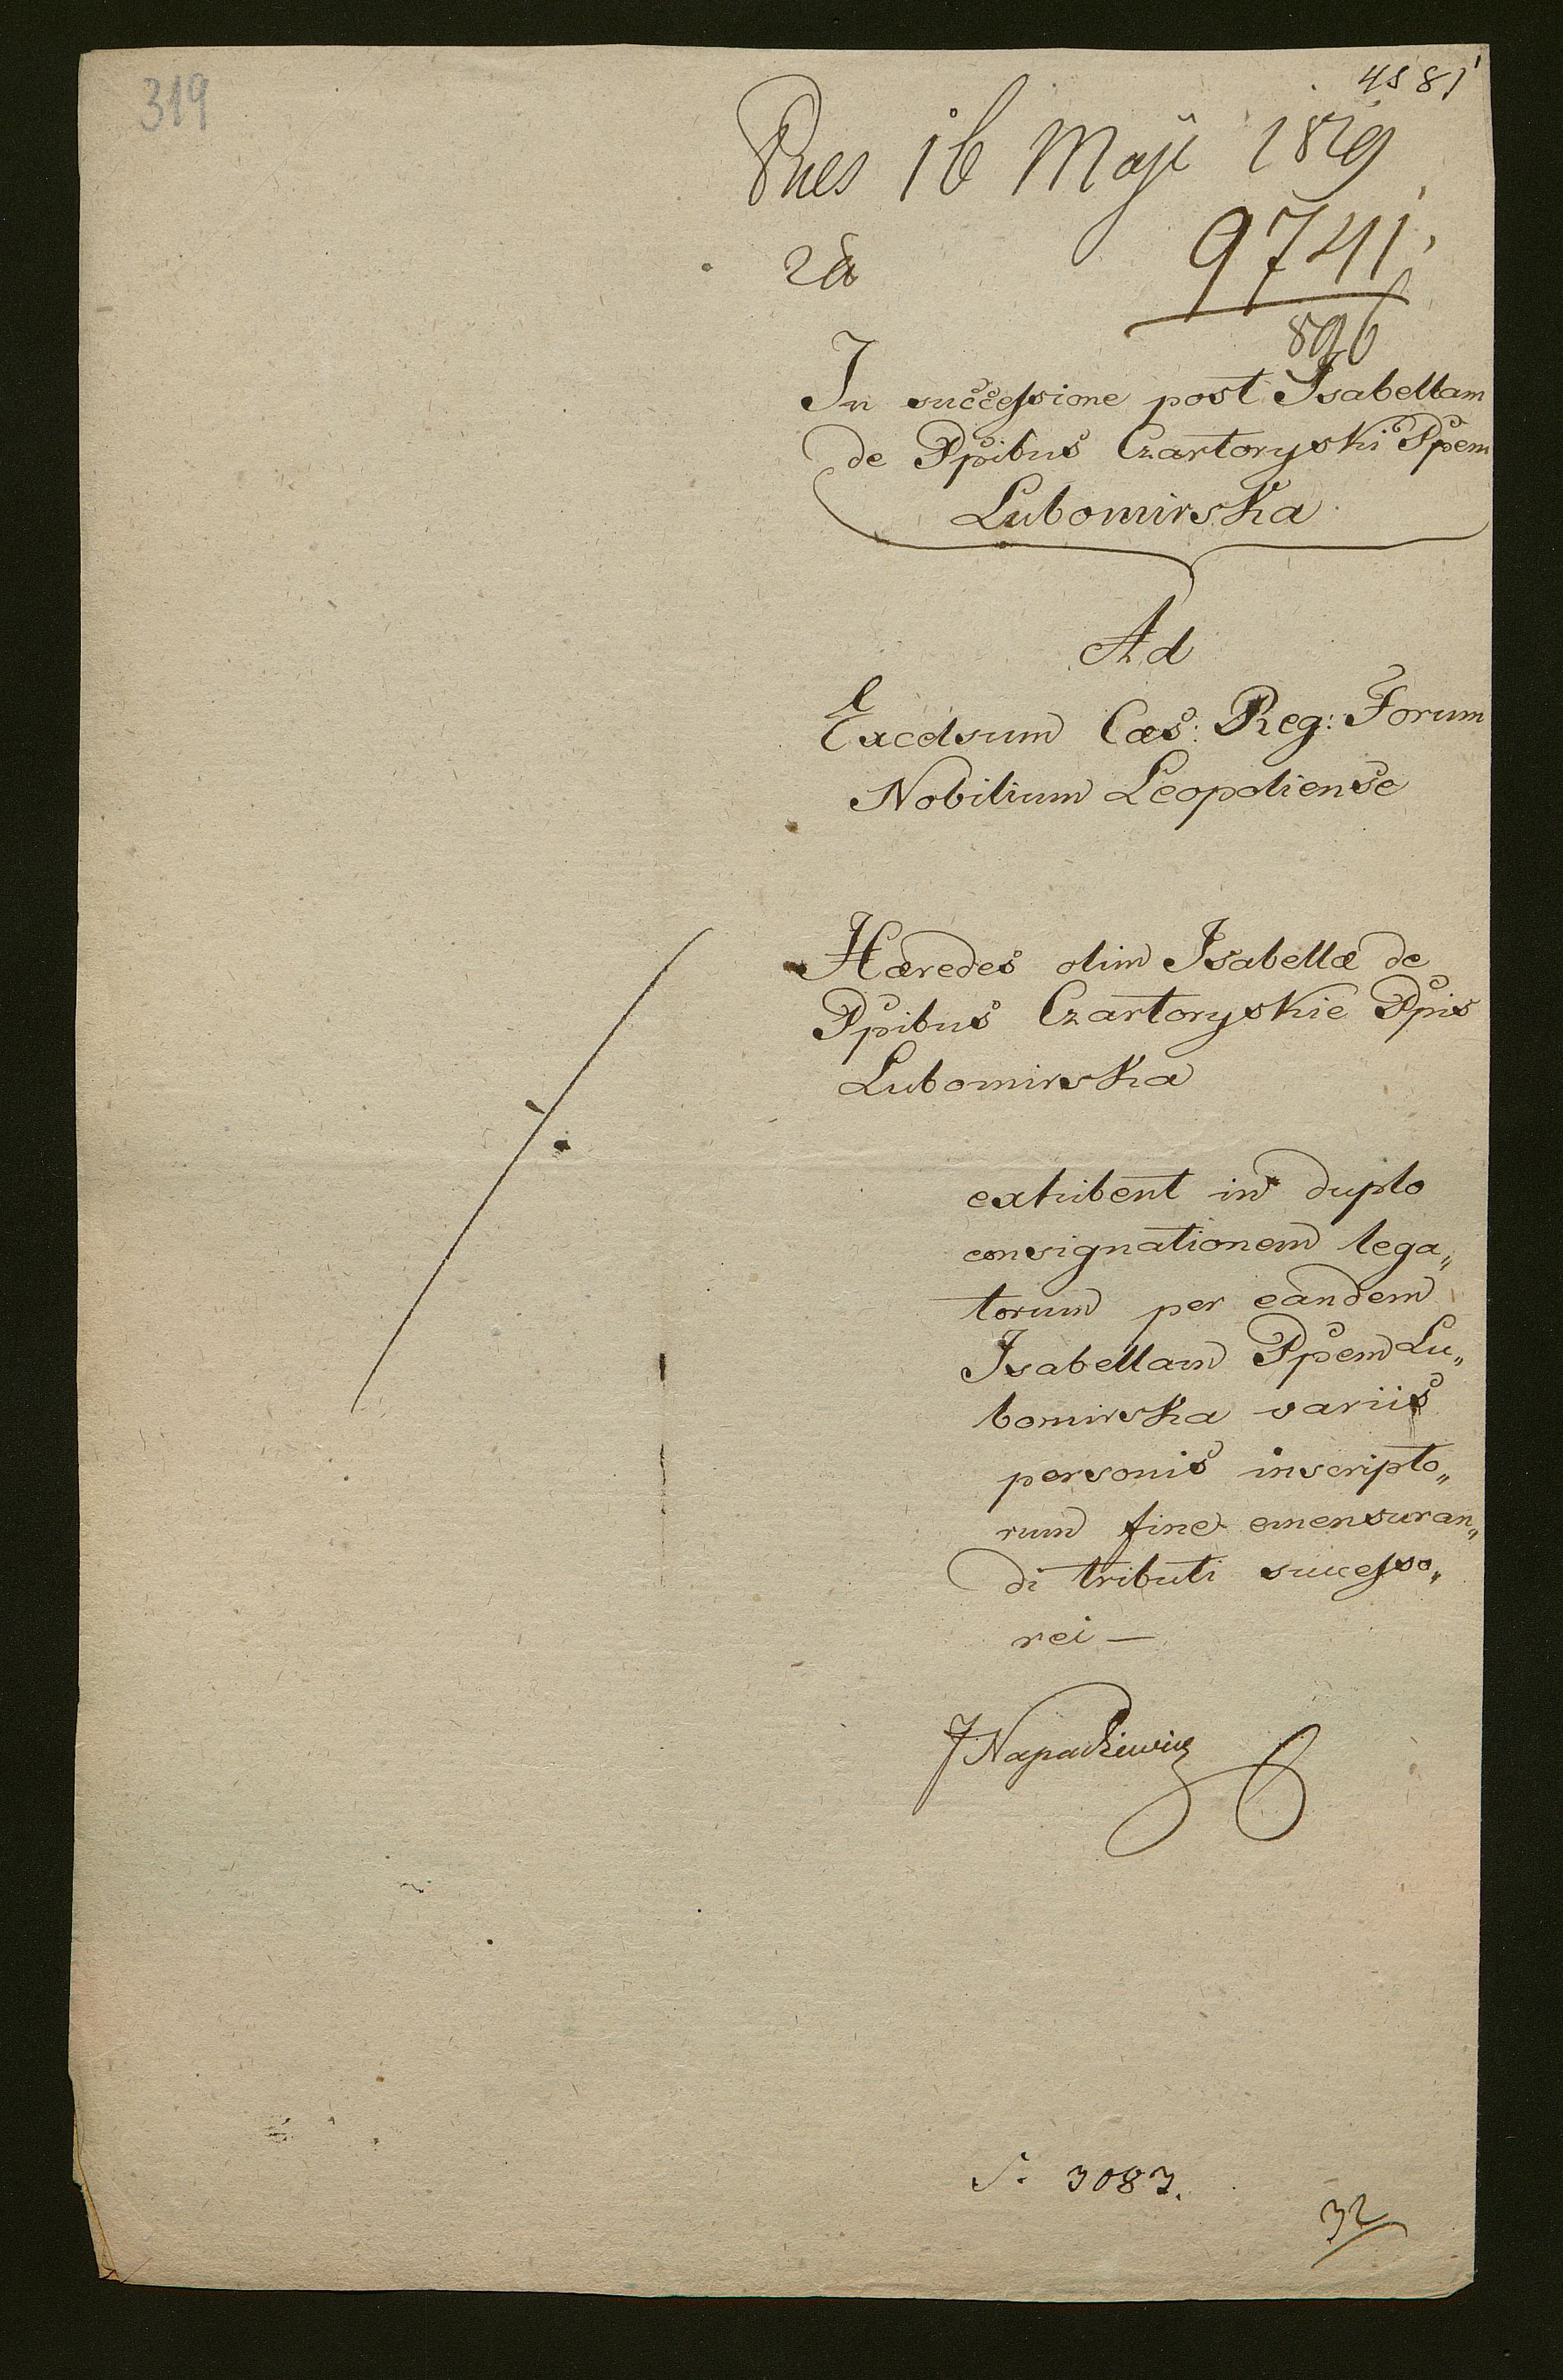 319
4581
Pres 16 Maji 1819
9741
896
In successione post Isabellam
de Ppibus Czartoryski Ppem
Lubomirska
Ad
Excelsum Cæs: Reg: Forum
Nobilium Leopoliense
Hæredes olim Isabellæ de
Ppibus Czartoryskie Ppis
Lubomirska
exhibent in duplo
consignationem lega„
torum per eandem
Isabellam Ppem Lu„
bomirska variis
personis inscripto„
rum fine emensuran„
di tributi successo„
rei —
S. 3083.
32